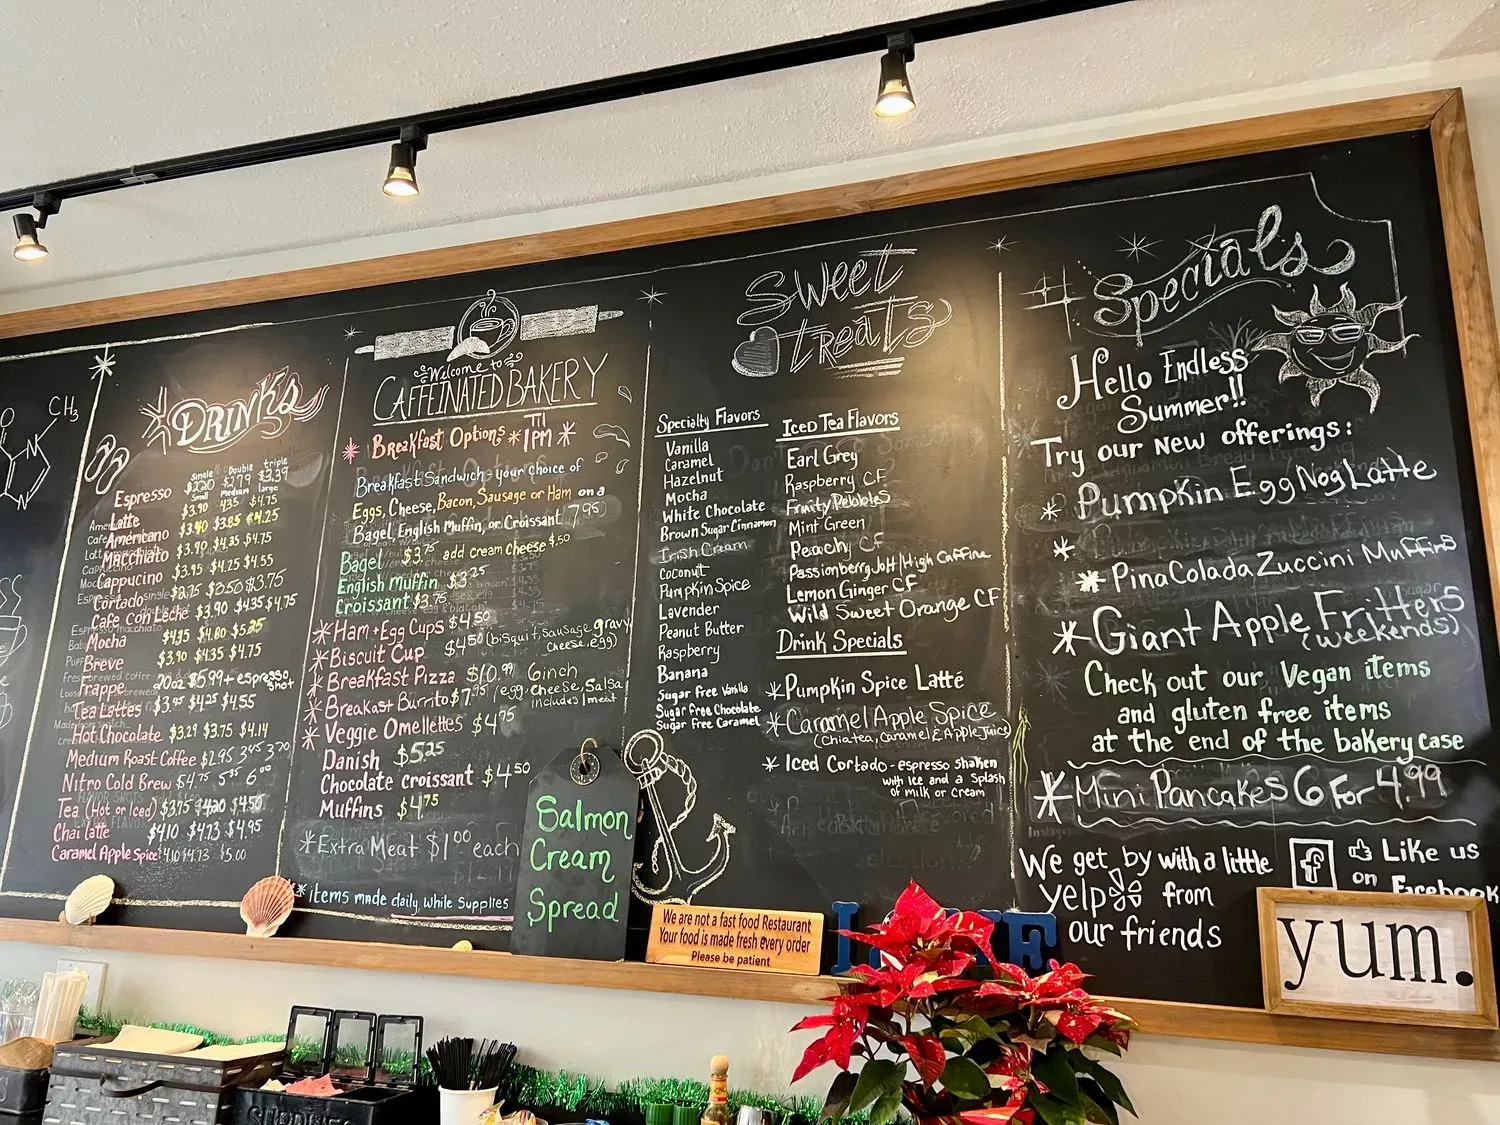 CH3
N
O
DRINKS
Single Double triple
Espresso $2.20 $2.79 $3.39
Small Medium Large
Latte $3.90 4.35 $4.75
Americano $3.40 $3.85 $4.25
Macchiato $3.90 $4.35 $4.75
Cappucino $3.95 $4.25 $4.55
Cortado $2.75 $3.50 $3.75
Cafe Con Leche $3.90 $4.35 $4.75
Mocha $4.35 $4.80 $5.25
Breve $3.90 $4.35 $4.75
Frappe 20oz $5.99 + espresso shot
Tea Lattes $3.95 $4.25 $4.55
Hot Chocolate $3.29 $3.75 $4.14
Medium Roast Coffee $2.95 3.45 3.70
Nitro Cold Brew $4.75 5.35 6.00
Tea (Hot or Iced) $3.75 $4.20 $4.50
Chai latte $4.10 $4.73 $4.95
Caramel Apple Spice $4.10 $4.73 $5.00
Welcome to
CAFFEINATED BAKERY
Breakfast Options *Til 1PM*
Breakfast Sandwich - your choice of
Eggs, Cheese, Bacon, Sausage or Ham on a
Bagel, English Muffin, or Croissant (7.95)
Bagel $3.75 add cream cheese $.50
English Muffin $3.25
Croissant $3.75
*Ham + Egg Cups $4.50
*Biscuit Cup $4.50 (bisquit, sausage gravy, cheese, egg)
*Breakfast Pizza $10.99 6inch
*Breakast Burrito $7.95 (egg, cheese, salsa includes 1 meat
*Veggie Omellettes $4.75
Danish $5.25
Chocolate croissant $4.50
Muffins $4.75
*Extra Meat $1.00 each
* items made daily, while supplies
Salmon
Cream
Spread
Sweet
treats
Specialty Flavors
Vanilla
Caramel
Hazelnut
Mocha
White Chocolate
Brown Sugar Cinnamon
Irish Cream
Coconut
Pumpkin Spice
Lavender
Peanut Butter
Raspberry
Banana
Sugar free Vanilla
Sugar free Chocolate
Sugar free Caramel
Iced Tea Flavors
Earl Grey
Raspberry CF
Fruity Pebbles
Mint Green
Peachy CF
Passionberry Jolt/High Caffine
Lemon Ginger CF
Wild Sweet Orange CF
Drink Specials
*Pumpkin Spice Latté
*Caramel Apple Spice
(Chia tea, Caramel & Apple Juice)
* Iced Cortado - espresso shaken
with ice and a splash
of milk or cream
We are not a fast food Restaurant
Your food is made fresh every order
Please be patient
Specials
Hello Endless
Summer!!
Try our new offerings:
* Pumpkin EggNog Latte
*
* PinaColada Zuccini Muffins
*Giant Apple Fritters
(weekends)
Check out our Vegan items
and gluten free items
at the end of the bakery case
*Mini Pancakes 6 For 4.99
We get by with a little
yelp from
our friends
f Like us
on Facebook
yum.